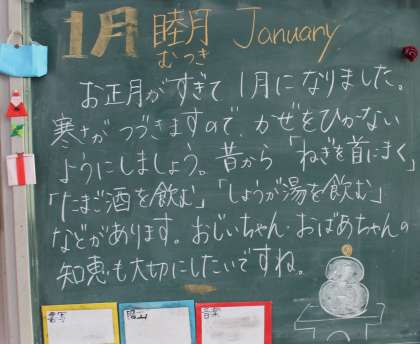 1月 睦月 January
むつき
お正月がすぎて1月になりました。
寒さがつづきますので、かぜをひかない
ようにしましょう。昔から「ねぎを首にまく」
「たまご酒を飲む」「しょうが湯を飲む」
などがあります。おじいちゃん・おばあちゃんの
知恵も大切にしたいですね。
書写
音楽